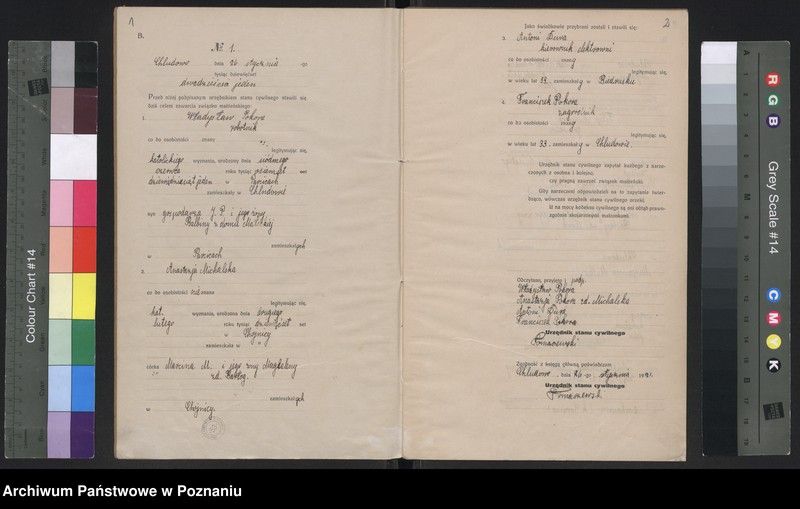 1
B.
Nr 1.
Chludowo dnia 26 stycznia -go
tysiąc dziewięćset
dwudziestia jeden
Przed niżej podpisanym urzędnikiem stanu cywilnego stawili się
dziś celem zawarcia związku małżeńskiego:
1. Władysław
robotnik
co do osobistości znany
legitymując się,
katolickiego wyznania, urodzony dnia siódmego
czerwca roku tysiąc osiemset set
dziewięćdziesiąt jeden w
zamieszkały w Chludowie
syn gospodarza J. P. i jego żony
z domu
zamieszkałych
w
2. Anastazja Michalska
co do osobistości znana
legitymując się,
kat. wyznania, urodzona dnia drugiego
lutego roku tysiąc set
w Chojnicy
zamieszkała w
córka Marcina M. i jego żony Magdaleny
zd.
zamieszkałych
w Chojnicy.
2
Jako świadkowie przybrani zostali i stawili się:
3. Antoni Dura
kierownik elektrowni
co do osobistości znany
legitymując się,
w wieku lat zamieszkały w Biedrusku
4. Franciszek
zagrodnik
co do osobistości znany
legitymując się,
w wieku lat 33, zamieszkały w Chludowie.
Urzędnik stanu cywilnego zapytał każdego z narze-
czonych z osobna i kolejno,
czy pragną zawrzeć związek małżeński.
Gdy narzeczeni odpowiedzieli na to zapytanie twier-
dząco, wówczas urzędnik stanu cywilnego orzekł,
iż na mocy kodeksu cywilnego są oni odtąd prawo-
rządnie skojarzonymi małżonkami.
Odczytano, przyjęto i podp.
Władysław
Anastazja zd. Michalska
Antoni Dura
Franciszek
Urzędnik stanu cywilnego
Zgodność z księgą główną poświadczam
Chludowo, dnia 26-go stycznia 1921.
Urzędnik stanu cywilnego
Colour Chart #14
Grey Scale #14
R
G
B
C
M
Y
K
Archiwum Państwowe w Poznaniu